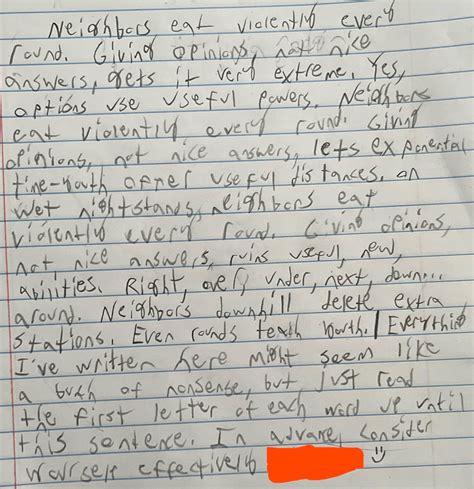 Neighbors eat violently every
round. Giving opinions, not nice
answers, gets it very extreme. Yes,
options use useful powers. Neighbors
eat violently, every round. Giving
opinions, not nice answers, lets exponential
time-youth offer useful distances. on
wet nightstands, neighbors eat
violently every round. Giving opinions,
not, nice answers, ruins useful, new,
abilities. Right, over, under, next, down...
around. Neighbors downhill delete extra
stations. Even rounds / Everything
I've written here might seem like
a buch of nonsense, but just read
the first letter of each word up until
this sentence. In advane, consider
yourself effectively